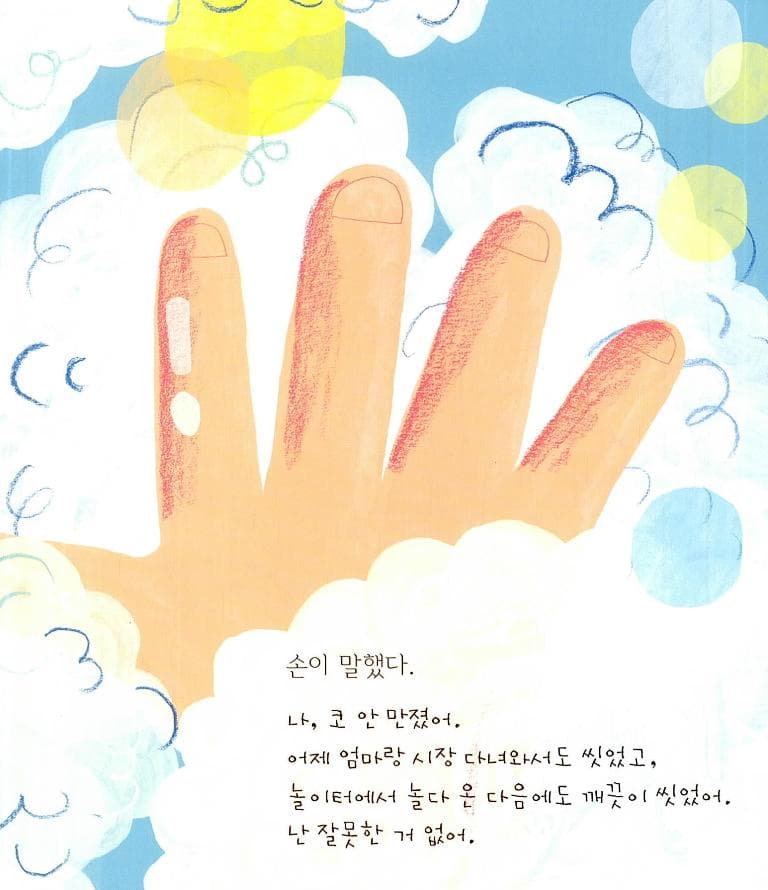 손이 말했다.
나, 코 안 만졌어.
어제 엄마랑 시장 다녀와서도 씻었고,
놀이터에서 놀다 온 다음에도 깨끗이 씻었어.
난 잘못한 거 없어.